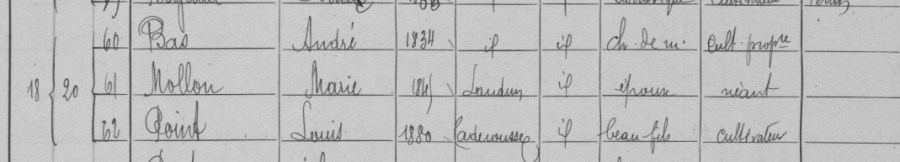 60 Bas André 1834 if if ch. de m. cult. propre
18 20 61 Mollon Marie 1841 Laudun if épouse néant
62 Point Louis 1880 Caderousse if beau fils cultivateur